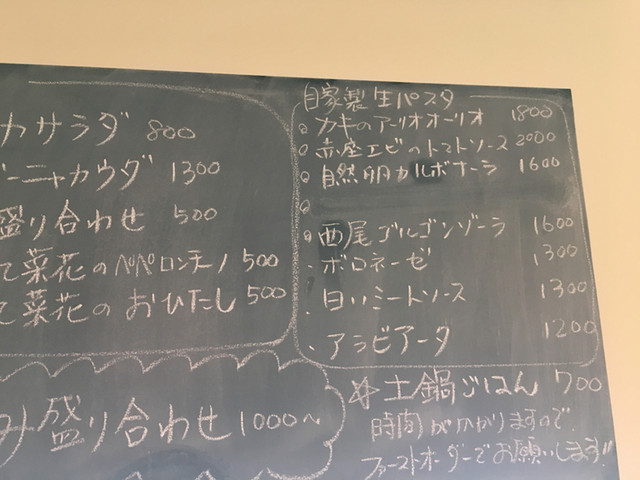 カサラダ 800
ーニャカウダ 1300
盛り合わせ 500
て菜花のペペロンチーノ 500
て菜花の おひたし 500
み盛り合わせ 1000〜
自家製生パスタ
カキのアーリオオーリオ 1800
赤座エビのトマトソース 2000
自然卵カルボナーラ 1600
西尾ゴルゴンゾーラ 1600
ボロネーゼ 1300
白いミートソース 1300
アラビアータ 1200
☆土鍋ごはん 700
時間がかかりますので、
ファーストオーダーでお願いします!!